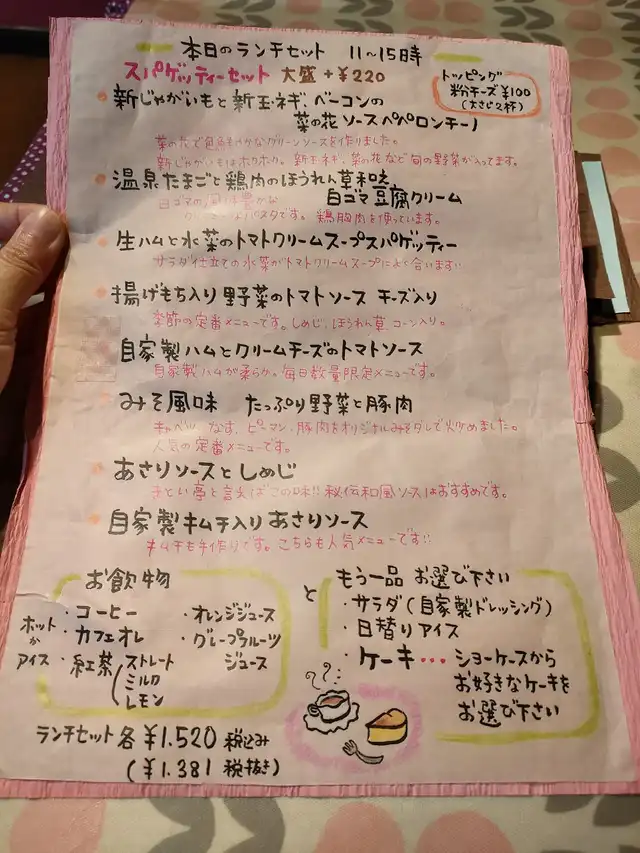 本日のランチセット 11~15時
スパゲッティーセット 大盛+¥220
トッピング
粉チーズ¥100
(大さじ2杯)
新じゃがいもと新玉ネギ、ベーコンの
菜の花ソースペペロンチーノ
菜の花で色鮮やかなグリーンソースを作りました。
新じゃがいもはホクホク。新玉ネギ、菜の花など旬の野菜が入ってます。
温泉たまごと鶏肉のほうれん草和え
白ゴマ豆腐クリーム
白ゴマの風味豊かな
パスタです。鶏胸肉を使っています。
生ハムと水菜のトマトクリームスープスパゲッティー
サラダ仕立ての水菜がトマトクリームスープによく合います!!
揚げもち入り野菜のトマトソース チーズ入り
季節の定番メニューです。しめじ、ほうれん草、コーン入り。
自家製ハムとクリームチーズのトマトソース
自家製ハムが柔らか。毎日数量限定メニューです。
みそ風味 たっぷり野菜と豚肉
キャベツ、なす、ピーマン、豚肉をオリジナルみそダレで炒めました。
人気の定番メニューです。
あさりソースとしめじ
さとい亭と言えばこの味!!秘伝和風ソースはおすすめです。
自家製キムチ入りあさりソース
キムチも手作りです。こちらも人気メニューです!!
お飲物
ホットかアイス
・コーヒー
・カフェオレ
・紅茶
ストレート
ミルク
レモン
・オレンジジュース
・グレープフルーツ
ジュース
と
もう一品 お選び下さい
・サラダ(自家製ドレッシング)
・日替りアイス
・ケーキ・・・ショーケースから
お好きなケーキを
お選び下さい
ランチセット各¥1,520 税込み
(¥1,381 税抜き)